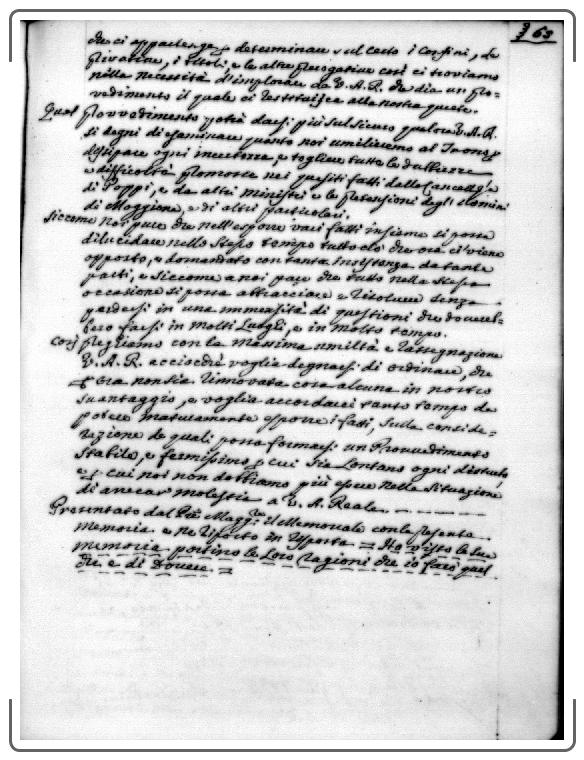 363
che ci appartenga, e determinare sul certo i confini, da
privative, i titoli, e le altre prerogative così ci troviamo
nella necessità d'implorare da V. A. R. che dia un pro-
vedimento il quale ci restituisca alla nostra quiete.
Qual provvedimento potrà darsi più sul sicuro qualora V. A. R.
si degni di esaminare quanto noi umilieremo al Trono per
dissipare ogni incertezza, e togliere tutte le dubbiezze
e difficoltà promosse nei quesiti fatti dalla
di Poppi, e da altri ministri e le pretensioni degl' Uomini
di Moggiona, e di altri particolari.
Siccome noi pure che nell'esporre varj fatti insieme si possa
dilucidare nello stesso tempo tuttociò che ora ci viene
opposto, e domandato con tanta insistenza da tante
parti, e siccome a noi pare che tutto nella stessa
occasione si possa abbracciare e risolvere senza
perdersi in una immensità di questioni che dovreb-
bero farsi in molti Luoghi, e in molto tempo.
Così preghiamo con la massima umiltà e rassegnazione
V. A. R. acciocché voglia degnarsi di ordinare, che
per ora non sia rinnovata cosa alcuna in nostro
svantaggio, e voglia accordarci tanto tempo da
potere maturamente esporre i fatti, sulla conside-
razione de quali possa formarsi un Provvedimento
stabile, e fermissimo per cui sia Lontano ogni disturbo,
e per cui noi non dobbiamo più essere nella situazione
di arrecar molestia a V. A. Reale.
Presentato dal Pre Maggre il Memoriale con la presente
memoria e ne riportò in risposta = Ho visto le sue
memorie portino le Loro ragioni che io farò quel
che è di Dovere. =